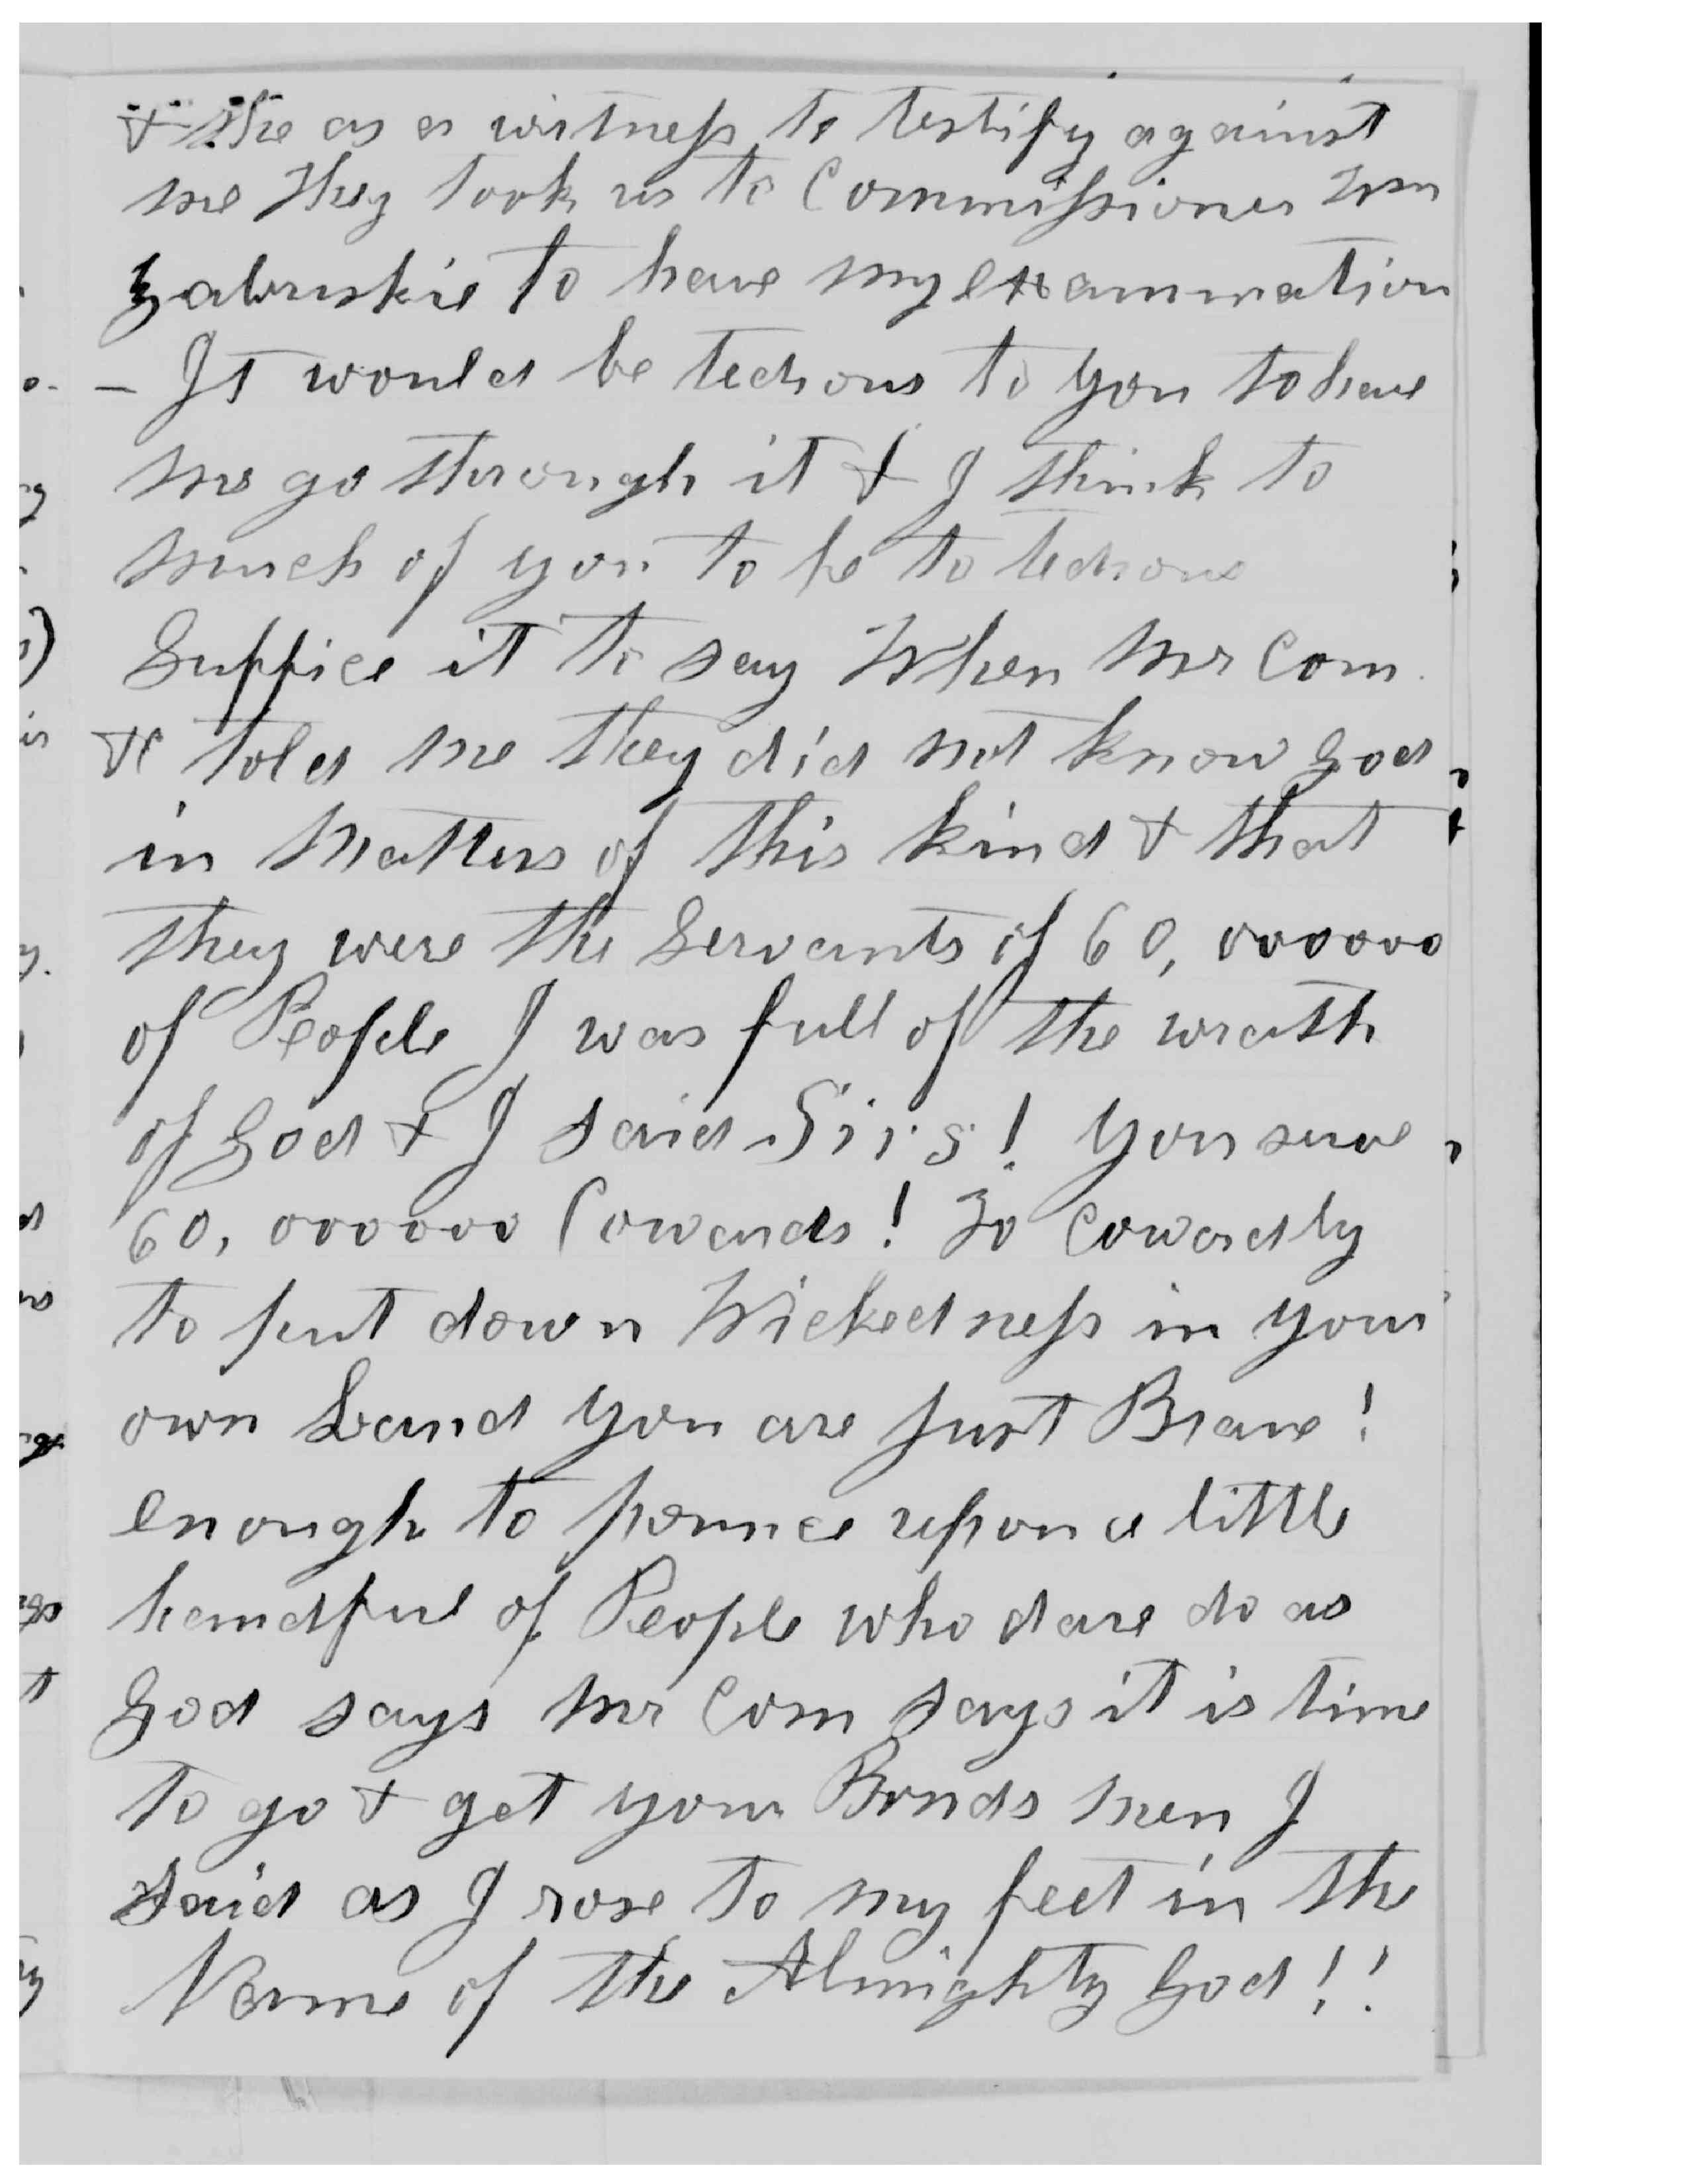 & she as a witness to testify against
me They took us to Commissioner Wm
Zabriskie to have my examination
– It would be tedious to you to have
me go through it & I think to
much of you to be to tedious
Suffice it to say When Mr Com.
&c told me they did not know God
in Matters of this kind & that
they were the Servants of 60, 000000
of People I was full of the wrath
of God & I said Sirs! you serve
60, 000000 Cowards! To Cowardly
to put down Wickedness in your
own Land you are just Brave!
enough to pounce upon a little
handful of People who dare do as
God says Mr Com says it is time
to go & get your Bonds men I
said as I rose to my feet in the
Name of the Almighty God!!